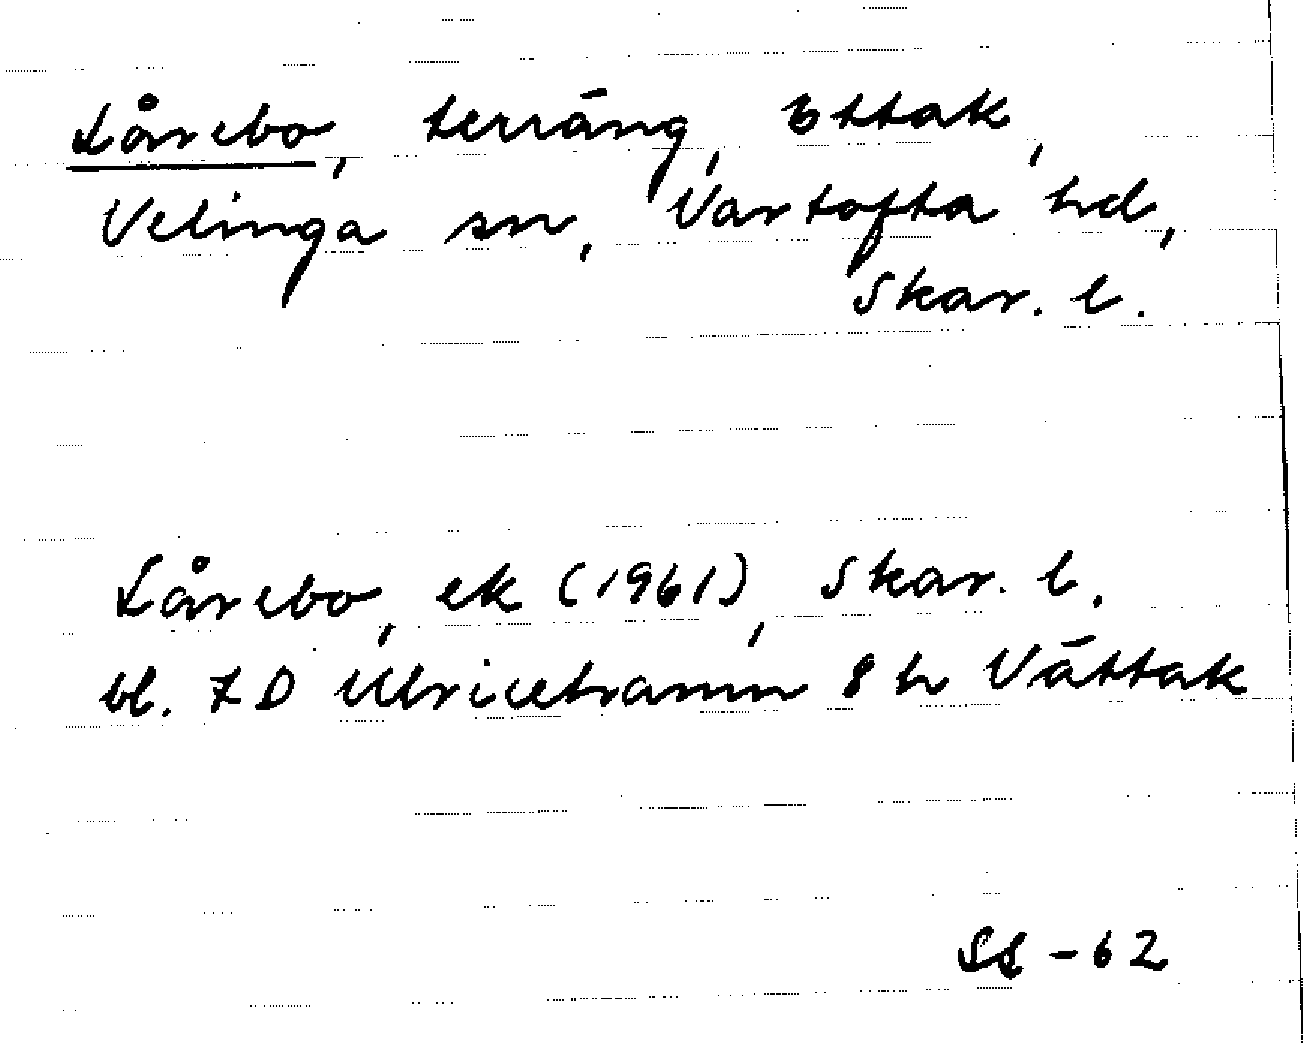 Lårebo, terräng, Ettak,
Velinga sn, Vartofta hd,
Skar. l.
Lårebo, ek (1961), Skar. l.
bl. 7D Ulricehamn 8 h Vättak
SL - 62